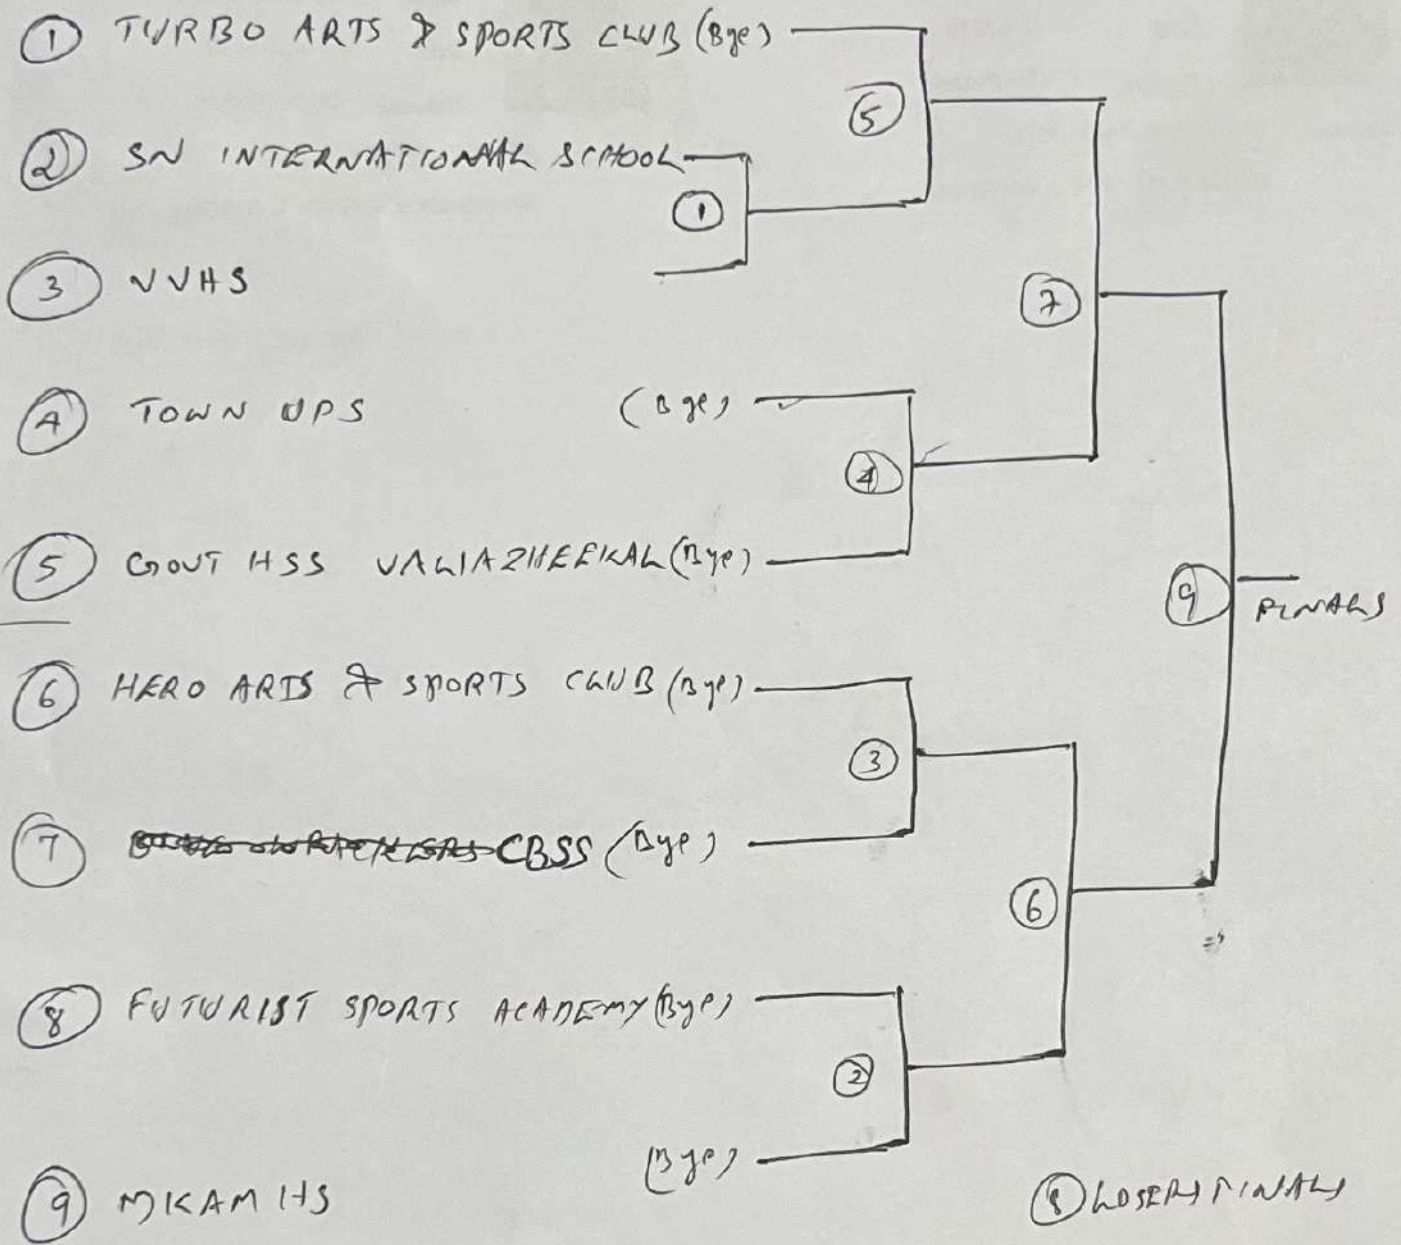 ① TURBO ARTS & SPORTS CLUB (Bye)
⑤
② SN INTERNATIONAL SCHOOL
①
③ VVHS
⑦
④ TOWN UPS (Bye)
④
⑤ GOVT HSS VALIAZHEEKAL (Bye)
⑨ FINALS
⑥ HERO ARTS & SPORTS CLUB (Bye)
③
⑦ CBSS (Bye)
⑥
⑧ FUTURIST SPORTS ACADEMY (Bye)
②
(Bye)
⑨ MKAM HS
⑧ LOSERS FINALS